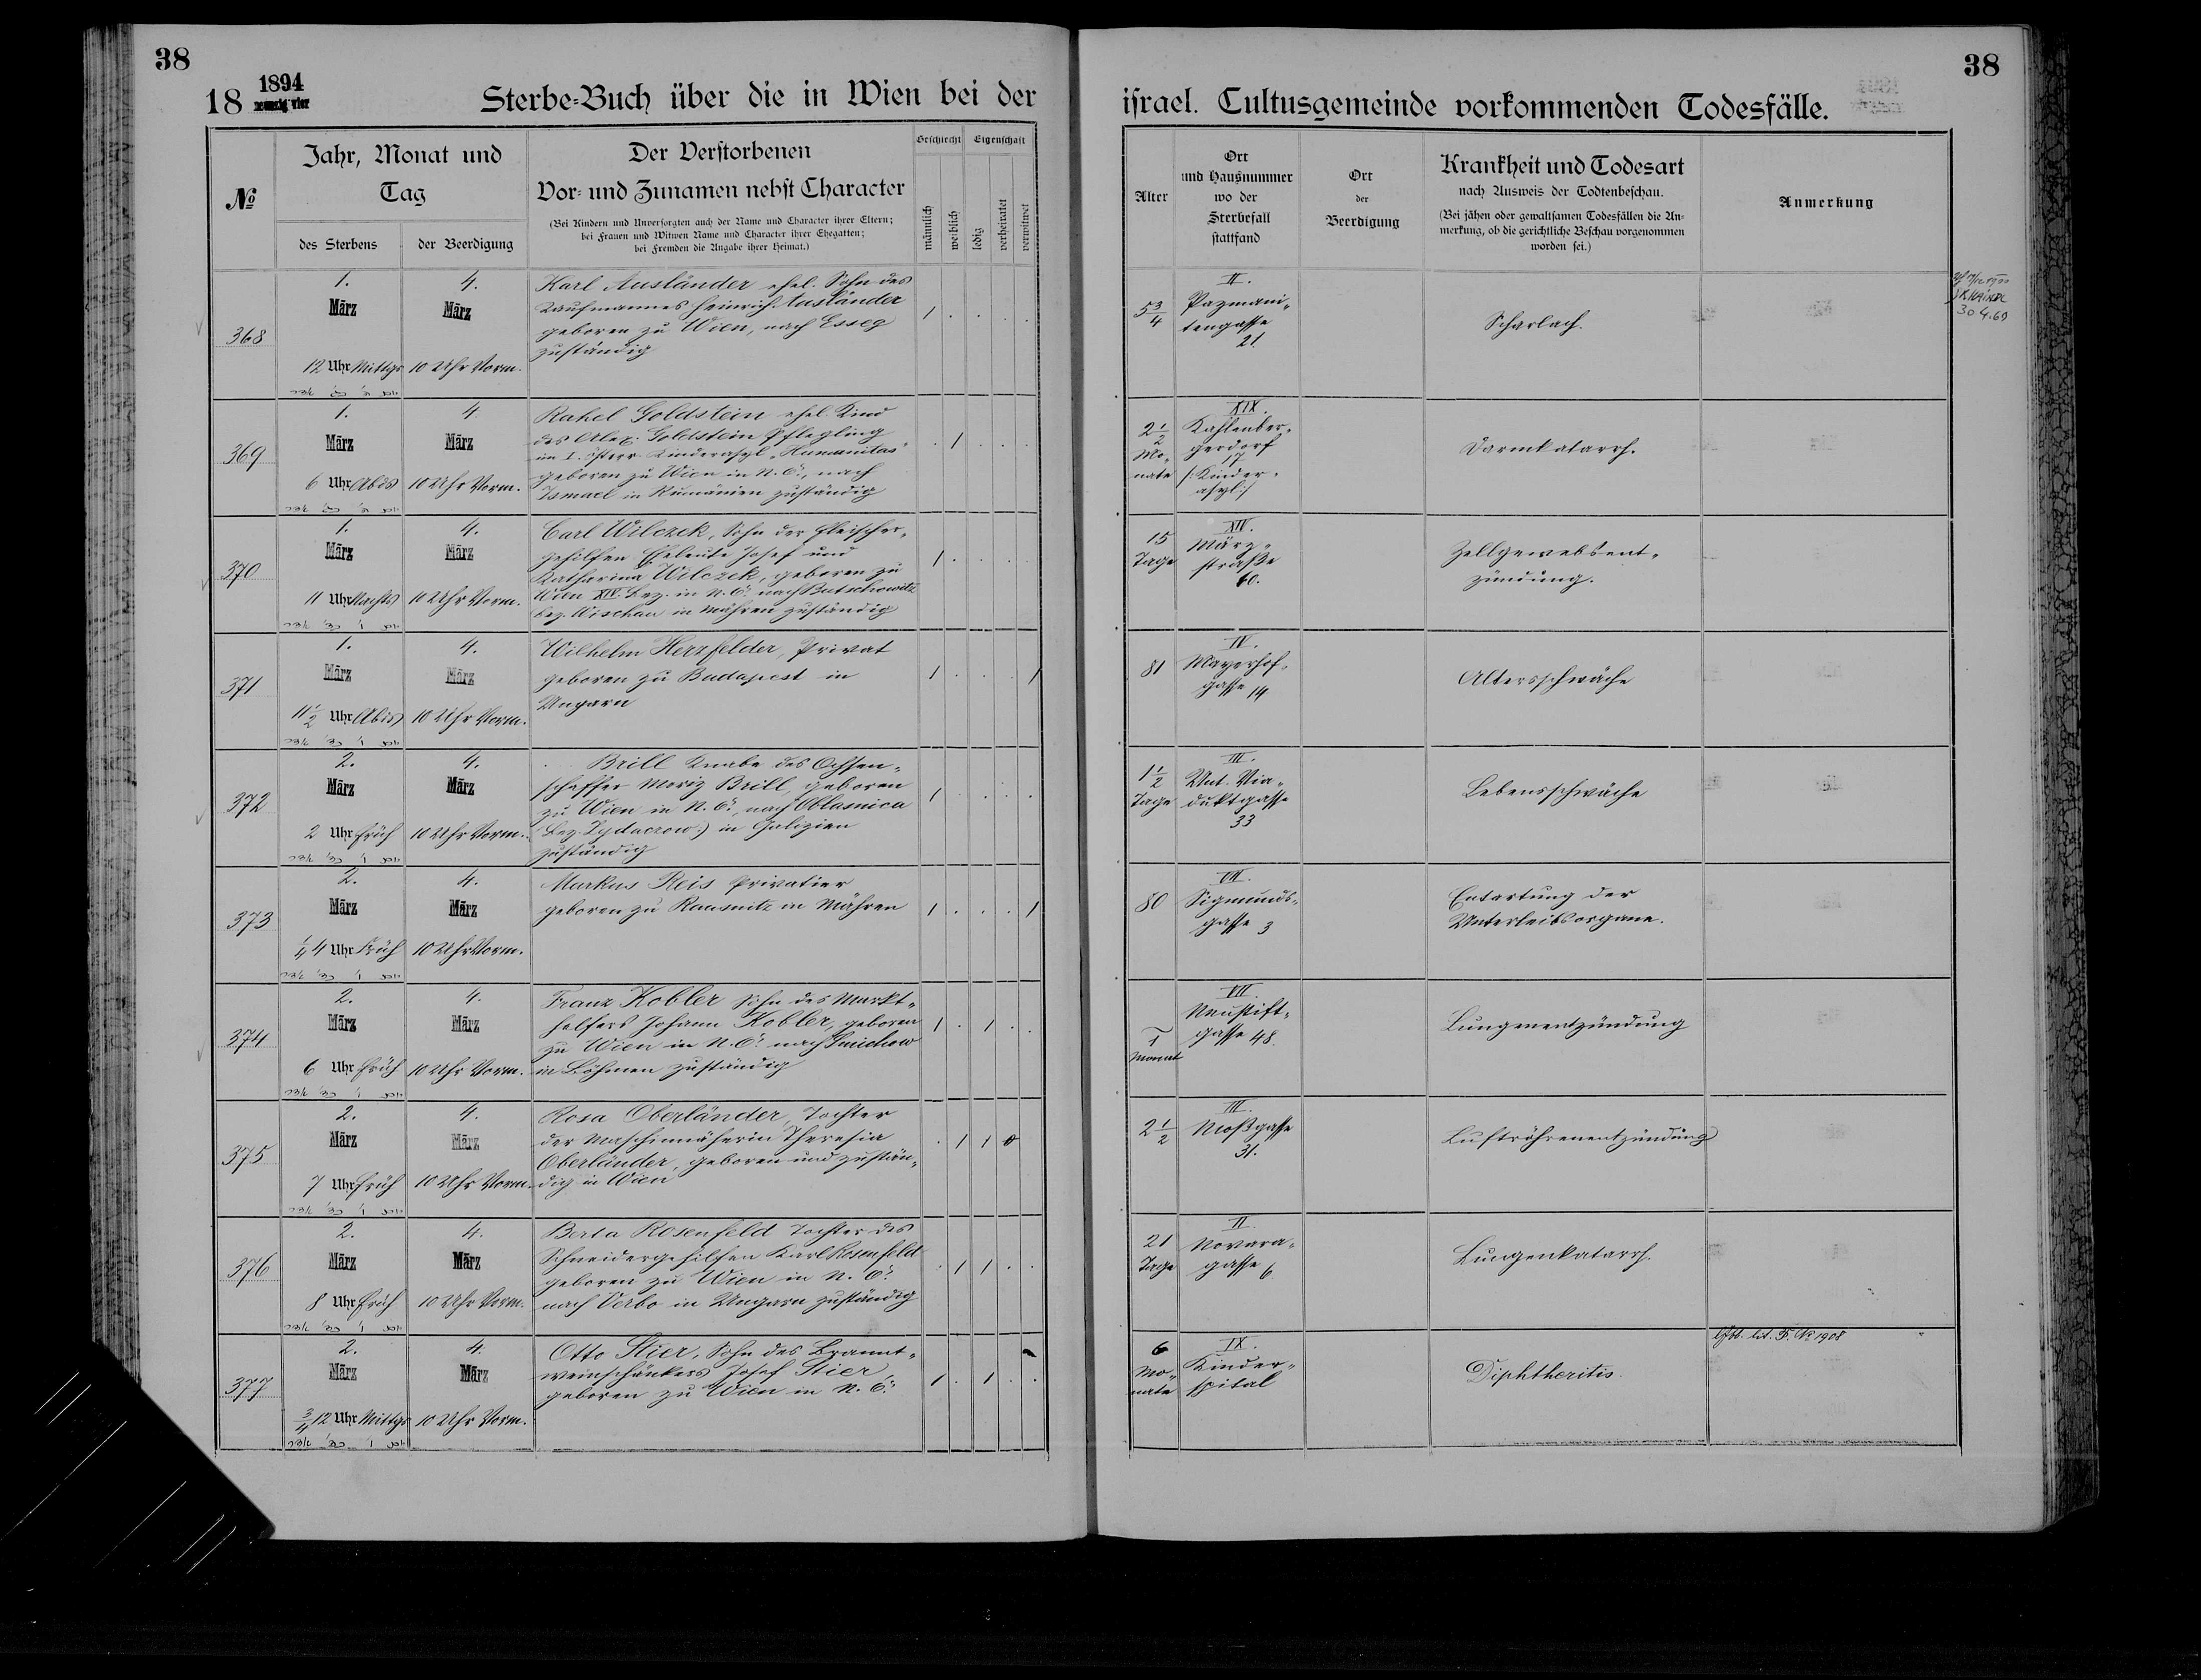 38
1894
neunzig vier
18
Sterbe-Buch über die in Wien bei der
No
Jahr, Monat und
Tag
des Sterbens
der Beerdigung
Der Verstorbenen
Vor- und Zunamen nebst Character
(Bei Kindern und Unversorgten auch der Name und Character ihrer Eltern;
bei Frauen und Witwen Name und Character ihrer Ehegatten;
bei Fremden die Angabe ihrer Heimat.)
Geschlecht
Eigenschaft
männlich
weiblich
ledig
verheiratet
verwitwet
368
1.
März
12 Uhr Mittgs
4.
März
10 Uhr Vorm.
Karl Ausländer ehel. Sohn des
Kaufmannes Heinrich Ausländer
geboren zu Wien, nach Esseg
zuständig
369
1.
März
6 Uhr Abds
4.
März
10 Uhr Vorm.
Rahel Goldstein ehel. Kind
des Alex. Goldstein Pflegling
im I. österr. Kinderasyl „Humanitas“
geboren zu Wien in N. Ö., nach
Ismael in Rumänien zuständig
370
1.
März
11 Uhr Nachts
4.
März
10 Uhr Vorm.
Carl Wilczek, Sohn der Fleischer-
gehilfen Eheleute Josef und
Katharina Wilczek, geboren zu
Wien XIV. Bez. in N. Ö. nach Butschowitz
Bez. Wischau in Mähren zuständig
371
1.
März
11 1/2 Uhr Abds
4.
März
10 Uhr Vorm.
Wilhelm Herzfelder, Privat
geboren zu Budapest in
Ungarn
372
2.
März
2 Uhr Früh
4.
März
10 Uhr Vorm.
Brill Knabe des Ochsen-
schaffer Moriz Brill, geboren
zu Wien in N. Ö., nach Oblasnica
(Bez. Zydaczow) in Galizien
zuständig
373
2.
März
1/4 4 Uhr Früh
4.
März
10 Uhr Vorm.
Markus Reis Privatier
geboren zu Rausnitz in Mähren
374
2.
März
6 Uhr Früh
4.
März
10 Uhr Vorm.
Franz Kobler Sohn des Markt-
helfers Johann Kobler, geboren
zu Wien in N. Ö. nach Smichow
in Böhmen zuständig
375
2.
März
7 Uhr Früh
4.
März
10 Uhr Vorm.
Rosa Oberländer, Tochter
der Maschinnäherin Theresia
Oberländer, geboren und zustän-
dig in Wien
376
2.
März
8 Uhr Früh
4.
März
10 Uhr Vorm.
Berta Rosenfeld Tochter des
Schneidergehilfen Karl Rosenfeld
geboren zu Wien in N. Ö.
nach Verbo in Ungarn zuständig
377
2.
März
3/4 12 Uhr Mittgs
4.
März
10 Uhr Vorm.
Otto Stier, Sohn des Brannt-
weinschänkers Josef Stier,
geboren zu Wien in N. Ö.
38
israel. Cultusgemeinde vorkommenden Todesfälle.
Alter
Ort
und Hausnummer
wo der
Sterbefall
stattfand
Ort
der
Beerdigung
Krankheit und Todesart
nach Ausweis der Todtenbeschau.
(Bei jähen oder gewaltsamen Todesfällen die An-
merkung, ob die gerichtliche Beschau vorgenommen
worden sei.)
Anmerkung
5 3/4
II.
Pazmani-
tengasse
21.
Scharlach.
30 4.69
2 1/2
Mo-
nate
XIX.
Kahlenber-
gerdorf
17
/: Kinder-
asyl :/
Darmkatarrh.
15
Tage
XIV.
März-
straße
60.
Zellgewebsent-
zündung.
81
IV.
Mayerhof-
gasse 14
Altersschwäche
1 1/2
Tage
III.
Unt. Via-
duktgasse
33
Lebensschwäche
80
VII.
Sigmunds-
gasse 3
Entartung der
Unterleibsorgane.
1
Monat
VII.
Neustift-
gasse 48.
Lungenentzündung
2 1/2
III.
Moßgasse
31.
Luftröhrenentzündung
21
Tage
II.
Novara-
gasse 6
Lungenkatarrh.
6
Mo-
nate
IX.
Kinder-
spital
Diphtheritis.
lit. F. No 1908